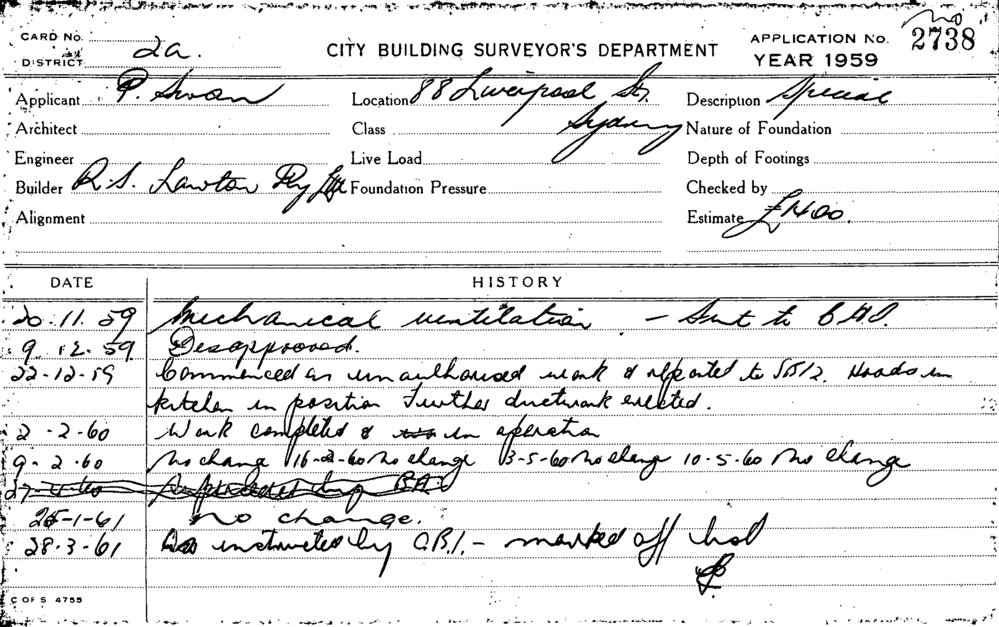 no
CARD No.
2a.
CITY BUILDING SURVEYOR'S DEPARTMENT
APPLICATION No. 2738
DISTRICT
YEAR 1959
Applicant P. Swan
Location 88 Liverpool St.
Description Special
Architect
Class Sydney
Nature of Foundation
Engineer
Live Load
Depth of Footings
Builder R.S. Lawton Pty Ltd
Foundation Pressure
Checked by
Alignment
Estimate £1400.
DATE HISTORY
20.11.59 Mechanical ventilation - Sent to
9.12.59 Disapproved.
22-12-59 Commenced as unauthorised work & reported to Hoods in
kitchen in position Further ductwork erected.
2-2-60 Work completed & in operation
9-2-60 No change 16-2-60 No change 3-5-60 No change 10-5-60 No change
25-1-61 No change.
28.3-61 As instructed by C.B.I. - marked off list
C OF S 4755